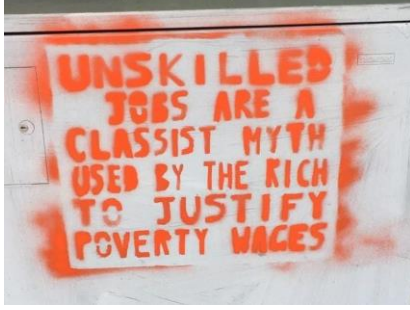 UNSKILLED
JOBS ARE A
CLASSIST MYTH
USED BY THE RICH
TO JUSTIFY
POVERTY WAGES